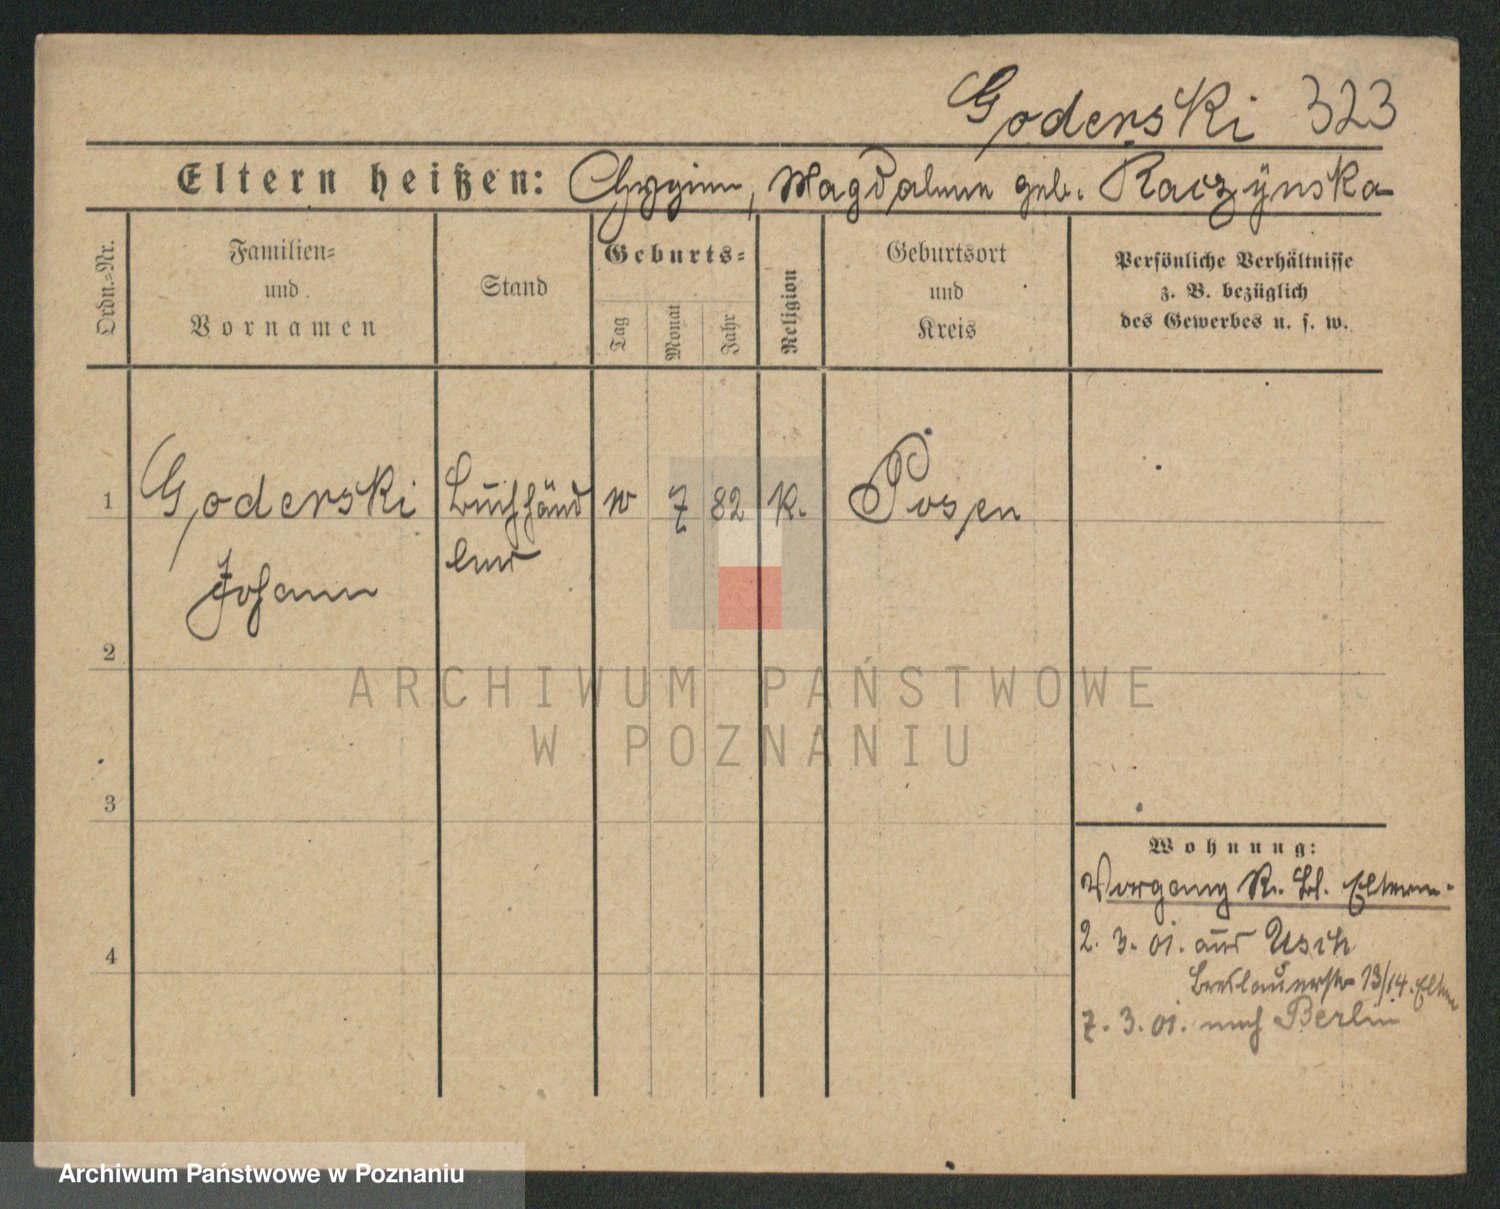 Goderski 323
Eltern heißen: Magdalene geb. Raczynska
Ordn.-Nr.
Familien-
und
Vornamen
Stand
Geburts-
Tag
Monat
Jahr
Religion
Geburtsort
und
Kreis
Persönliche Verhältnisse
z. B. bezüglich
des Gewerbes u. s. w.
1 Goderski Buchhänd 7 82 K. Posen
ler
Johann
2
3
4
ARCHIWUM PAŃSTWOWE
W POZNANIU
Wohnung:
Vorgang K. Bl. Eltern.
2. 3. 01. aus Usch
Breslauerstr 13/14. Eltern
7. 3. 01. nach Berlin
Archiwum Państwowe w Poznaniu